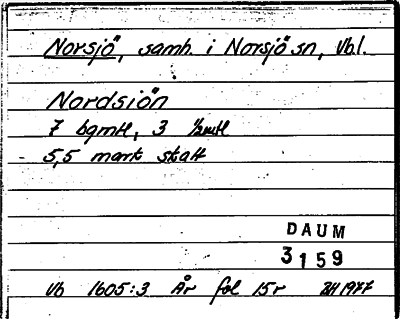 Norsjö, samh. i Norsjö sn, Vbl.
Nordsiön
7 bgmtl, 3 ½mtl
5,5 mark skatt
DAUM
3159
Vb 1605:3 År fol 15r 1977